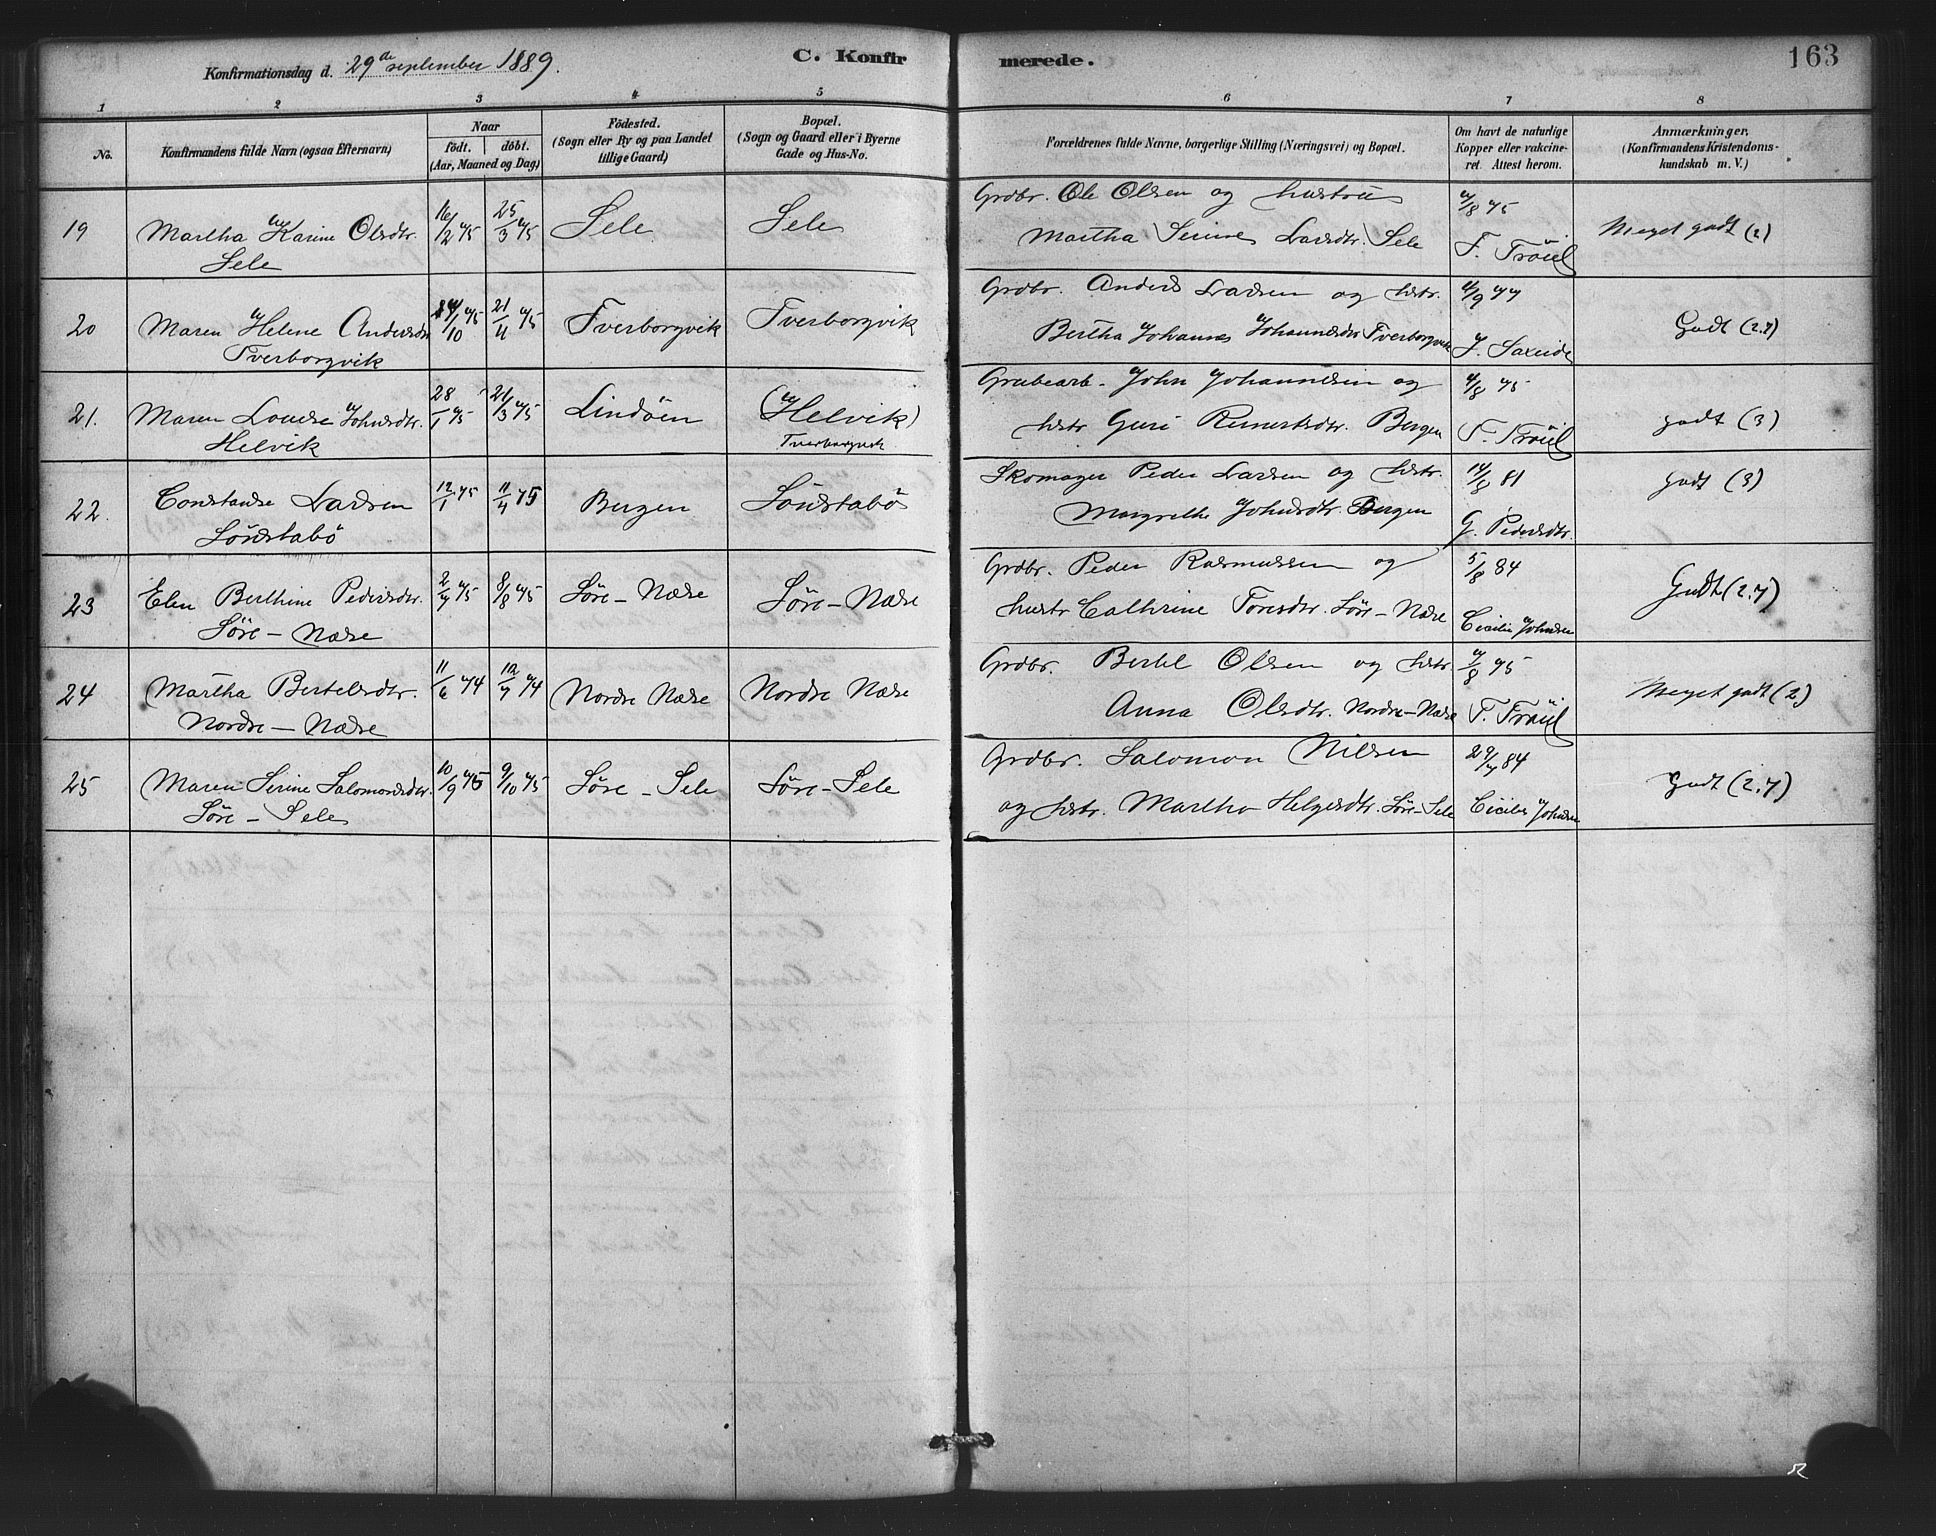 Konfirmationsdag d. 29de september 1889.
C. Konfirmerede.
163
1 2 3 4 5 6 7 8
No.
Konfirmandens fulde Navn (ogsaa Efternavn)
Naar
födt. döbt.
(Aar, Maaned og Dag)
Födested.
(Sogn eller By og paa Landet
tillige Gaard)
Bopæl.
(Sogn og Gaard eller i Byerne
Gade og Hus-No.
Forældrenes fulde Navne, borgerlige Stilling (Næringsvei) og Bopæl.
Om havt de naturlige
Kopper eller vakcine-
ret. Attest herom.
Anmærkninger.
(Konfirmandens Kristendoms-
kundskab m. V.)
19 Martha Karine Olsdtr. 16/2 75 25/3 75 Sele Sele
Sele
Grdbr. Ole Olsen og hustru
Martha Serine Larsdtr. Sele
4/8 75
F. Tröiel
Meget godt (2)
20 Maren Helene Andersdtr 75 21/4 75 Tverborgvik Tverborgvik
Tverborgvik
Grdbr. Anders Larsen og hstr.
Bertha Johannes Johannesdtr Tverborgvik
4/9 77
J. Saxeide
Godt (2.7)
21. Maren Lovise Johnsdtr. 28/1 75 21/3 75 Lindöen (Helvik)
Helvik
Tverborgvik
Grubearb. John Johannesen og
hstr Guri Reinertsdtr. Bergen
4/8 75
F. Tröiel
godt (3)
22. Constanse Larsen 12/1 75 11/4 75 Bergen Sörstabö
Sörstabö
Skomager Peder Larsen og hstr.
Margrethe Johnsdtr. Bergen
14/8 81
G. Pedersdtr.
godt (3)
23 Elen Berthine Pedersdtr. 2/7 75 8/8 75 Söre-Næse Söre-Næse
Söre-Næse
Grdbr. Peder Rasmussen og
hustr Cathrine Toresdtr. Söre-Næse
5/8 84
Cicilie Johnsen
Godt (2.7)
24 Martha Bertelsdtr. 11/6 74 12/7 74 Nordre Næse Nordre Næse
Nordre-Næse
Grdbr. Bertel Olsen og hstr
Anna Olsdtr. Nordre-Næse
4/8 75
F. Tröiel
Meget godt (2)
25 Maren Serine Salomonsdtr. 10/9 75 9/10 75 Söre-Sele Söre-Sele
Söre-Sele
Grdbr. Salomon Nilsen
og hstr. Martha Helgesdtr. Söre-Sele
29/7 84
Cicilie Johnsen
Godt (2.7)